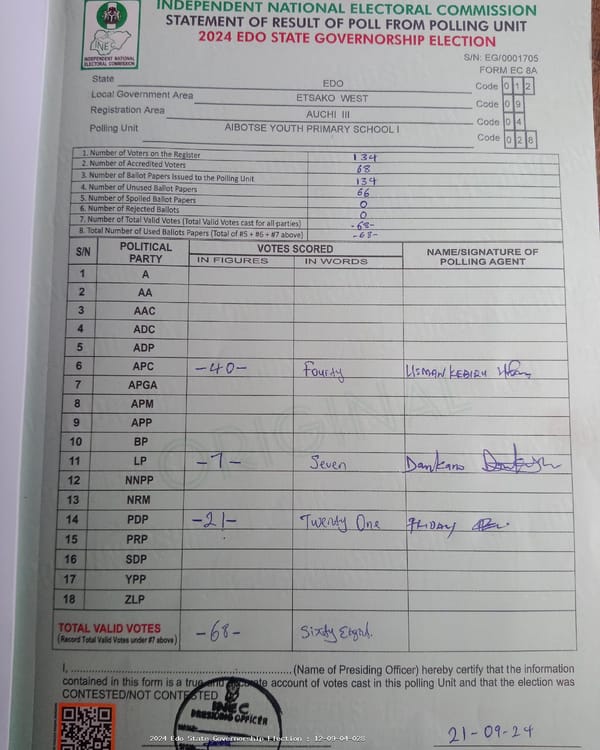 INDEPENDENT NATIONAL ELECTORAL COMMISSION
STATEMENT OF RESULT OF POLL FROM POLLING UNIT
2024 EDO STATE GOVERNORSHIP ELECTION
INEC
INDEPENDENT NATIONAL ELECTORAL COMMISSION
S/N: EG/0001705
FORM EC 8A
State EDO Code 0 1 2
Local Government Area ETSAKO WEST Code 0 9
Registration Area AUCHI III Code 0 4
Polling Unit AIBOTSE YOUTH PRIMARY SCHOOL I Code 0 2 8
1. Number of Voters on the Register 134
2. Number of Accredited Voters 68
3. Number of Ballot Papers Issued to the Polling Unit 134
4. Number of Unused Ballot Papers 66
5. Number of Spoiled Ballot Papers 0
6. Number of Rejected Ballots 0
7. Number of Total Valid Votes (Total Valid Votes cast for all parties) -68-
8. Total Number of Used Ballots Papers (Total of #5 + #6 + #7 above) -68-
S/N POLITICAL PARTY VOTES SCORED NAME/SIGNATURE OF POLLING AGENT
IN FIGURES IN WORDS
1 A
2 AA
3 AAC
4 ADC
5 ADP
6 APC -40- Fourty USMAN KEBIRU
7 APGA
8 APM
9 APP
10 BP
11 LP -7- Seven Dankano
12 NNPP
13 NRM
14 PDP -21- Twenty One FRIDAY
15 PRP
16 SDP
17 YPP
18 ZLP
ORIGINAL
TOTAL VALID VOTES -68- Sixty Eight.
(Record Total Valid Votes under #7 above)
I, ............................................................(Name of Presiding Officer) hereby certify that the information
contained in this form is a true and accurate account of votes cast in this polling Unit and that the election was
CONTESTED/NOT CONTESTED
INEC
PRESIDING OFFICER
21-09-24
2024 Edo State Governorship Election : 12-09-04-028